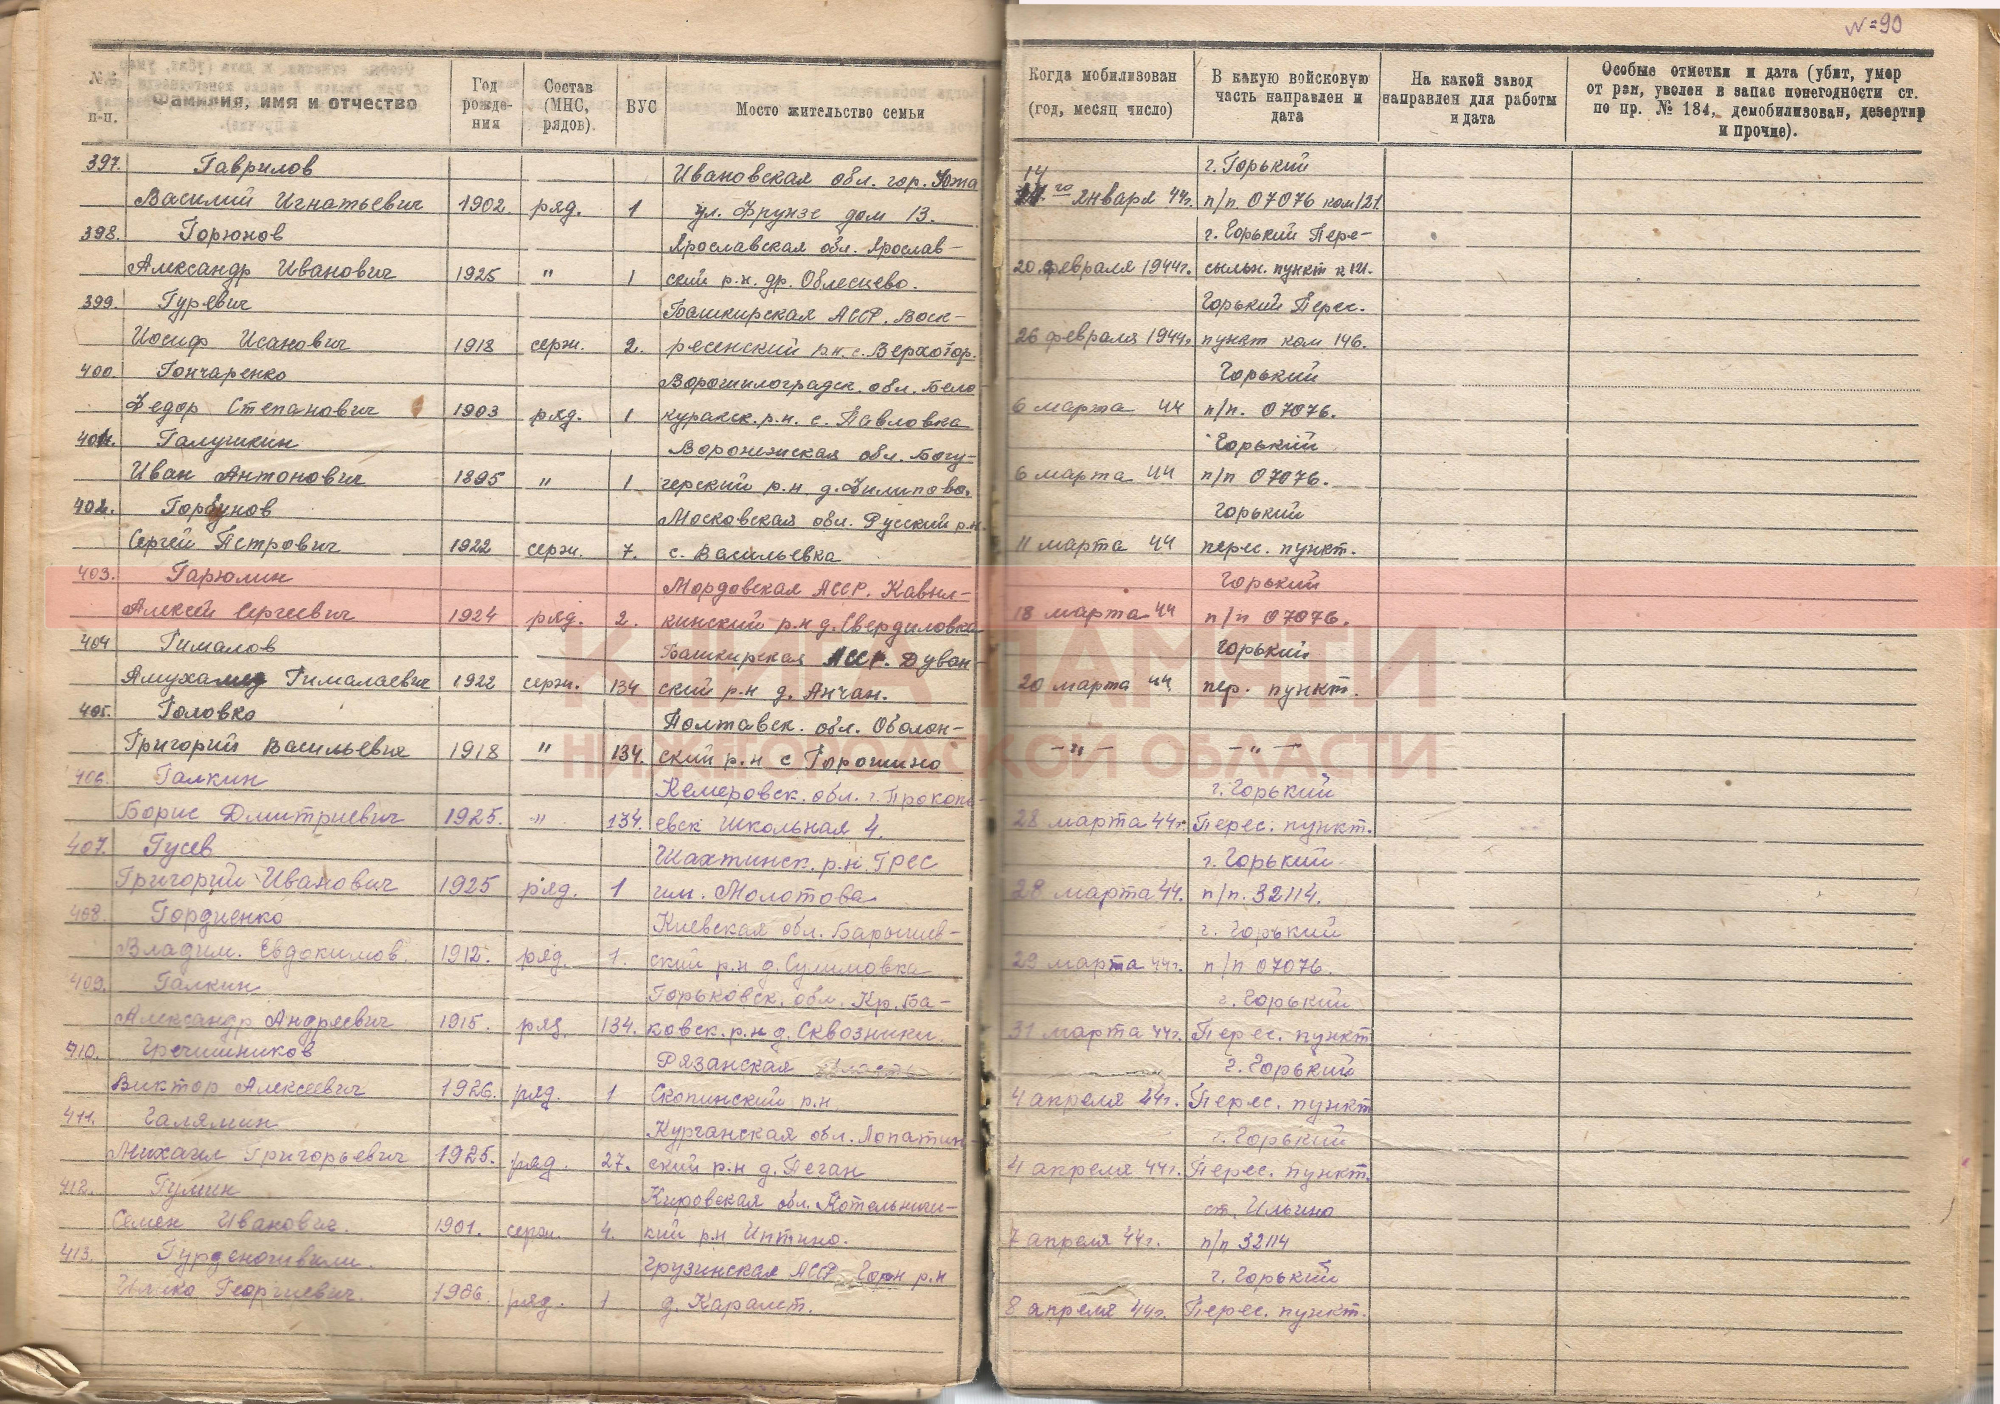 № 90
№№ п-п.
Фамилия, имя и отчество
Год рожде- ния
Состав (МНС, рядов).
ВУС
Место жительство семьи
Когда мобилизован (год, месяц число)
В какую войсковую часть направлен и дата
На какой завод направлен для работы и дата
Особые отметки и дата (убит, умер от ран, уволен в запас понегодности ст. по пр. № 184, демобилизован, дезертир и прочие).
397. Гаврилов Ивановская обл. гор. Южа 14 г. Горький
Василий Игнатьевич 1902. ряд. 1 ул. Фрунзе дом 13. го января 44г. п/п. 07076 ком 121.
398. Горюнов Ярославская обл. Ярослав- г. Горький Пере-
Александр Иванович 1925 " 1 ский р.н. др. Облесцево. 20 февраля 1944г. сыльн. пункт к 121.
399. Гуревич Башкирская АССР. Воск- Горький Перес.
Иосиф Исакович 1918 серж. 2. ресенский р.н. с. Верхотор. 26 февраля 1944г. пункт ком 146.
400. Гончаренко Ворошиловградск. обл. Бело- Горький
Федор Степанович 1903 ряд. 1 куракск. р.н. с. Павловка 6 марта 44 п/п. 07076.
401. Галушкин Воронежская обл. Богу- Горький
Иван Антонович 1895 " 1 черский р.н д. Филипово. 6 марта 44 п/п 07076.
402. Горбунов Московская обл. Русский р.н. Горький
Сергей Петрович 1922 серж. 7. с. Васильевка 11 марта 44 перес. пункт.
403. Гарюлин Мордовская АССР. Кавыл- Горький
Алексей Сергеевич 1924 ряд. 2. кинский р.н д. Свердиловка 18 марта 44 п/п 07076.
404 Гималов Башкирская АССР. Дуван- Горький
Амухамед Гималаевич 1922 серж. 134 ский р.н д. Анчан. 20 марта 44 пер. пункт.
405. Головко Полтавск. обл. Оболон-
Григорий Васильевич 1918 " 134. ский р.н с Горошино -"- -"-
406. Галкин Кемеровск. обл. г. Прокопь- г. Горький
Борис Дмитриевич 1925. " 134. евск Школьная 4. 28 марта 44г. Перес. пункт.
407. Гусев Шахтинск. р.н. ГРЕС г. Горький
Григорий Иванович 1925 ряд. 1 им. Молотова 28 марта 44. п/п. 32114.
408. Гордиенко Киевская обл. Барышев- г. Горький
Владим. Евдокимов. 1912. ряд. 1. ский р.н д. Сулимовка 29 марта 44г. п/п 07076.
409. Галкин Горьковск. обл. Кр. Ба- г. Горький
Александр Андреевич 1915. ряд. 134. ковск. р.н д. Сквозники. 31 марта 44г. Перес. пункт
410. Гречишников Рязанская область г. Горький
Виктор Алексеевич 1926. ряд. 1 Скопинский р.н 4 апреля 44г. Перес. пункт
411. Галямин Курганская обл. Лопатин- г. Горький
Михаил Григорьевич 1925. ряд. 27. ский р.н д. Пеган 4 апреля 44г. Перес. пункт.
412. Гулин Кировская обл. Котельнич- ст. Ильино
Семен Иванович. 1901. серж. 4. кий р.н Интино. 7 апреля 44г. п/п 32114
413. Грузинская АССР Гори р.н г. Горький
Илико Георгиевич. 1906. ряд. 1 д. Каралет. 8 апреля 44г. Перес. пункт.
КНИГА ПАМЯТИ
НИЖЕГОРОДСКОЙ ОБЛАСТИ